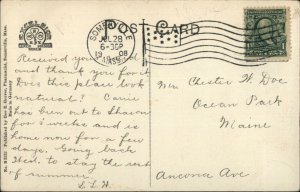 POST CARD
SOMERVILLE
JUL 28
6-30P
1908
MASS.
Received your card
and thank you for it
Does this place look
natural? Carrie
has been out to Sharon
for 5 weeks and is
home now for a few
days. Going back
Wed. to stay the rest
of summer.
S. L. H.
Mrs Chester W. Doe
Ocean Park
Maine
Ancona Ave
Made in Germany